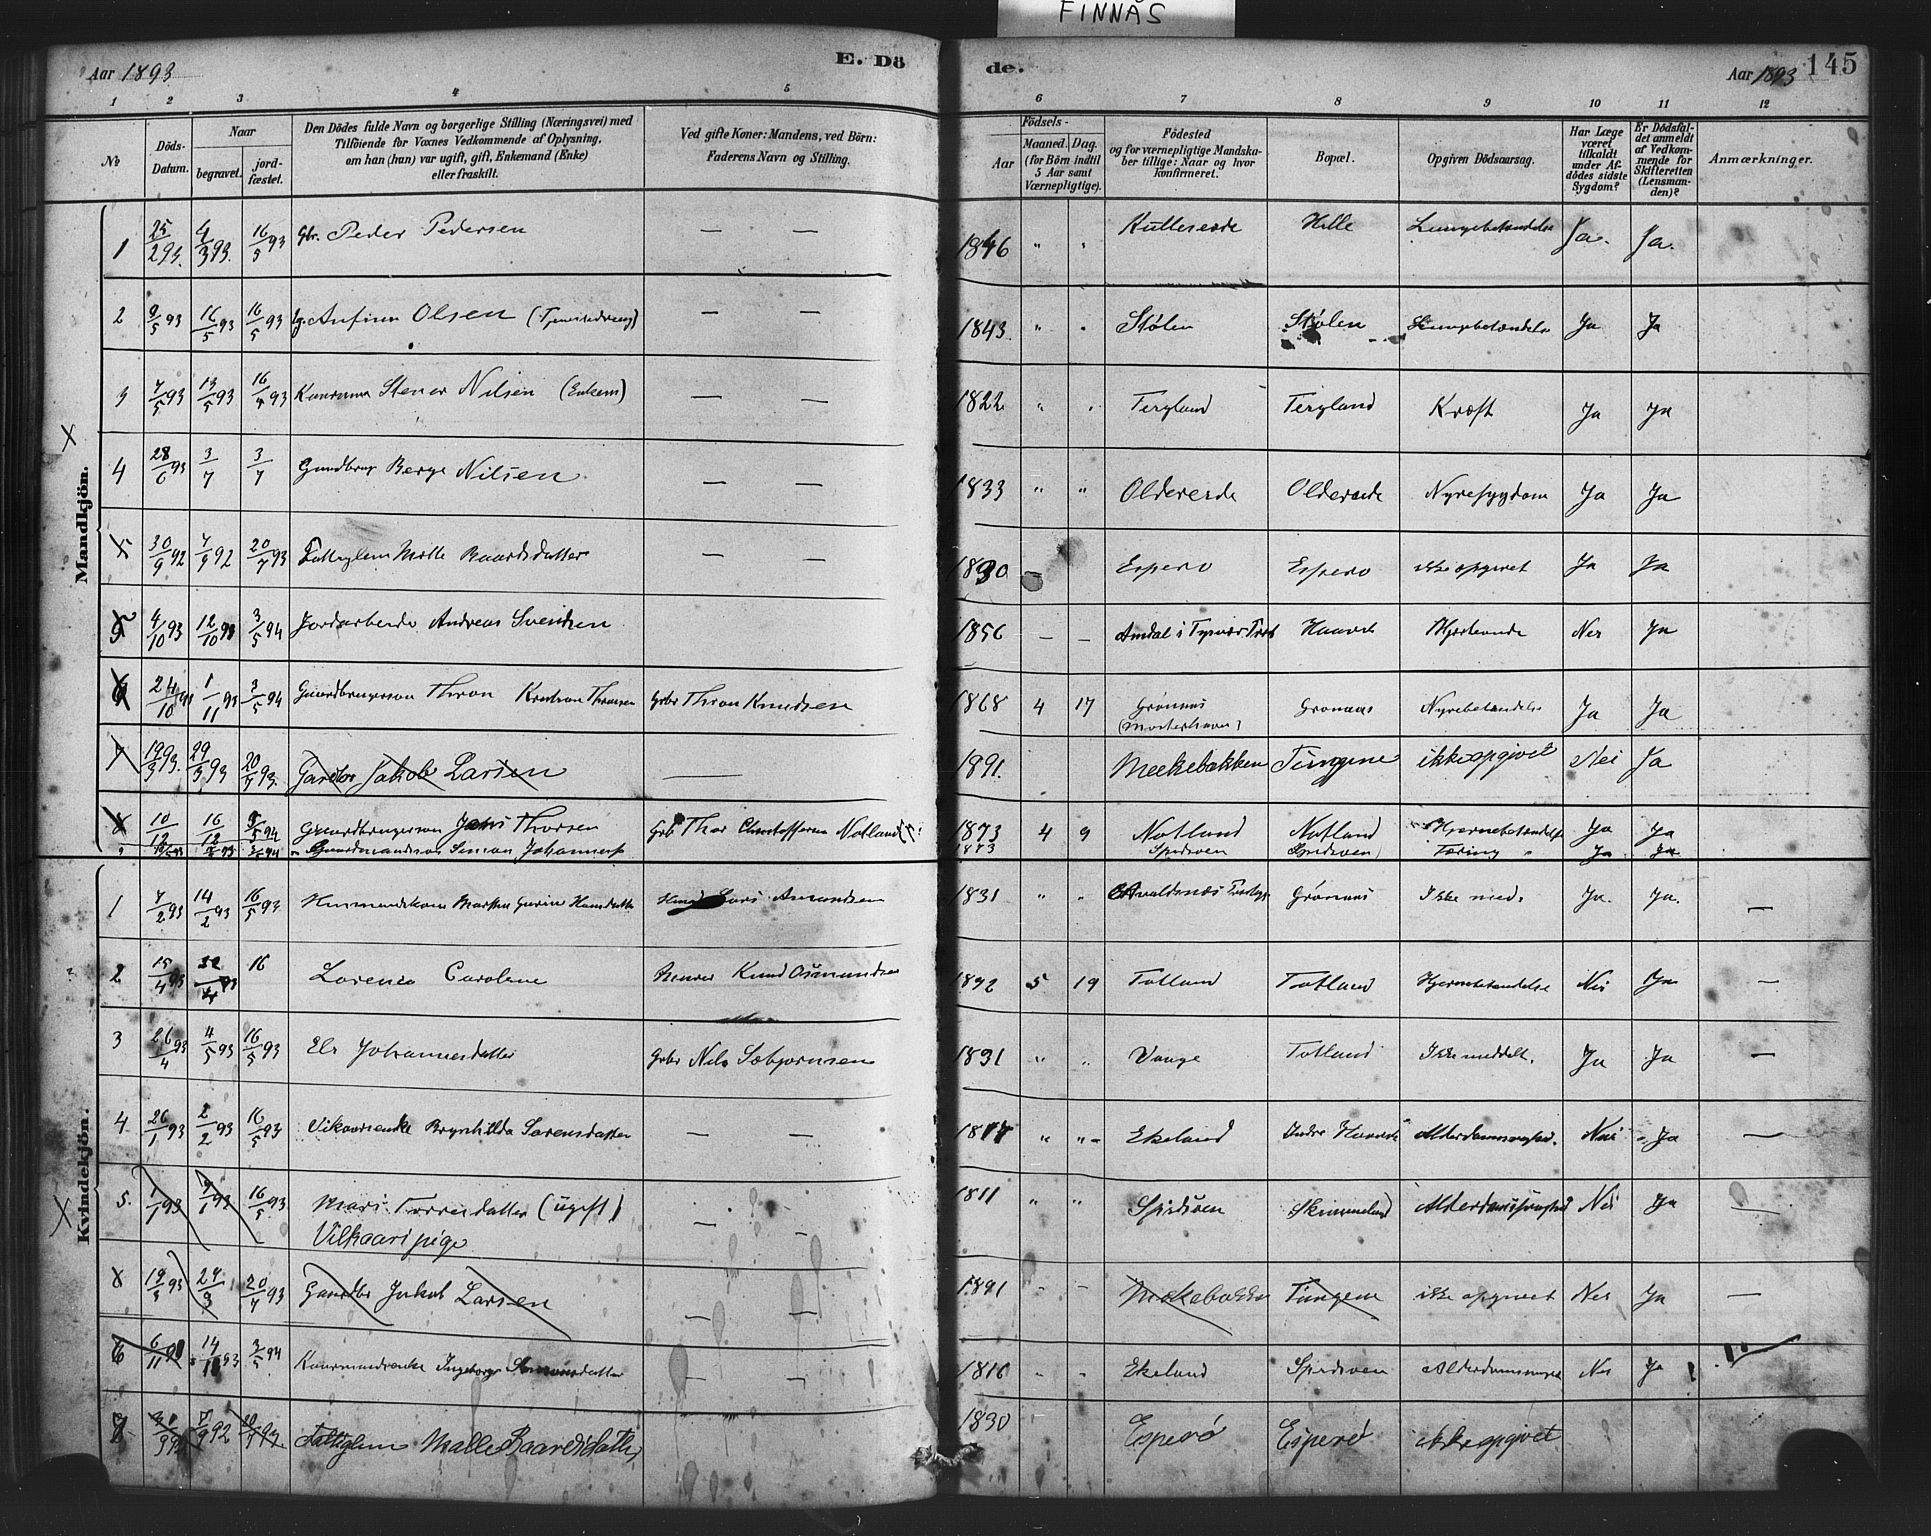 FINNÅS
Aar 1893
E. Dö
de.
Aar 1893
145
1 2 3 4 5 6 7 8 9 10 11 12
No
Döds-Datum.
Naar
begravet.
jord-fæstet.
Den Dödes fulde Navn og borgerlige Stilling (Næringsvei) med
Tilföiende for Voxnes Vedkommende af Oplysning,
om han (hun) var ugift, gift, Enkemand (Enke)
eller fraskilt.
Ved gifte Koner: Mandens, ved Börn:
Faderens Navn og Stilling.
Födsels-
Aar
Maaned. Dag.
(for Börn indtil
5 Aar samt
Værnepligtige).
Födested
og for værnepligtige Mandska-
ber tillige: Naar og hvor
konfirmeret.
Bopæl.
Opgiven Dödsaarsag.
Har Læge
været
tilkaldt
under Af-
dödes sidste
Sygdom?
Er Dödsfal-
det anmeldt
af Vedkom-
mende for
Skifteretten
(Lensman-
den)?
Anmærkninger.
Mandkjön.
1 25/2 93. 4/3 93. 16/5 93 Gbr. Peder Pedersen — — 1846 " " Kulleseide Hille Lungebetændelse Ja. Ja.
2 9/5 93 16/5 93 16/5 93 Anfinn Olsen — — 1843 " " Stølen Stølen Lungebetændelse Ja Ja
3 7/5 93 13/5 93 16/5 93 Stener Nilsen (Enkem) — — 1822 " " Tergland Tergland Kræft Ja Ja
4 28/6 93 3/7 3/7 Gaardbrug Berge Nilsen — — 1833 " " Oldereide Oldereide Nyresygdom Ja Ja
30/9 92 7/9 92 20/7 93 Fattiglem Malle Baardsdatter — — 1830 — Esperø Esperø ikke opgivet Ja Ja
5 4/10 93 12/10 93 3/5 94 Jordarbeide Andreas Svendsen 1856 — — Amdal i Tysvær Haavik Nei Ja
6 24/10 93 1/11 93 3/5 94 Gaardbrugerson Thron Kristian Thronsen Gbr Thron Knudsen 1868 4 17 Grønnaas (Mosterhavn) Grønnaas Nyrebetændelse Ja Ja
7 19/3 93. 29/3 93 20/7 93. Gardbr Jakob Larsen — 1891. Meekebakken Tungene ikke opgivet Nei Ja
8 10/12 16/12 94 Gaardbrugerson Jens Thorsen Gbr Thor Christoffersen Notland 1873 4 9 Notland Notland Hjernebetændelse Ja Ja
Gaardmandsson Simon Johannes 1873 Spidsøen Spidsøen Tæring Ja Ja
Kvindekjön.
1 7/2 93 14/2 93 16/5 93 Husmandskone Martha Hansdatter Lars Amundsen 1831 " " Grønnaas Ikke med. Ja. Ja. —
2 15/4 93 16 Lorence Caroline Knud Osmundsen 1892 5 19 Totland Totland Hjernebetændelse Nei Ja —
3 26/4 93 4/5 93 16/5 93 Eli Johannesdatter Gbr Nils Sæbjørnsen 1831 " " Vaage Totland Ikke meddelt. Ja Ja —
4 26/1 93 2/2 93 16/5 93 Vilkaarsenke Brynhilda Sørensdatter — — " " Ekeland Indre Haavik Alderdomssvaghed. Nei Ja —
5. 1/1 93 9/1 93 16/5 93 Mari Torresdatter (ugift)
Vilkaarspige — — 1811 " " Spidsøen Skimmeland Alderdomssvaghed Nei Ja —
19/3 93 29/3 20/7 93 Gaardbr Jakob Larsen — — 1891 - - Mekebakken Tungene ikke opgivet Nei Ja —
6 6/11 93 14/11 93 3/5 94 Ingeborg Simonsdatter — — 1816 Ekeland Spidsøen Alderdomssvaghed Nei Ja
7/9 92 20/7 93 Fattiglem Malle Baardsdatter 1830 Esperø Esperø ikke opgivet